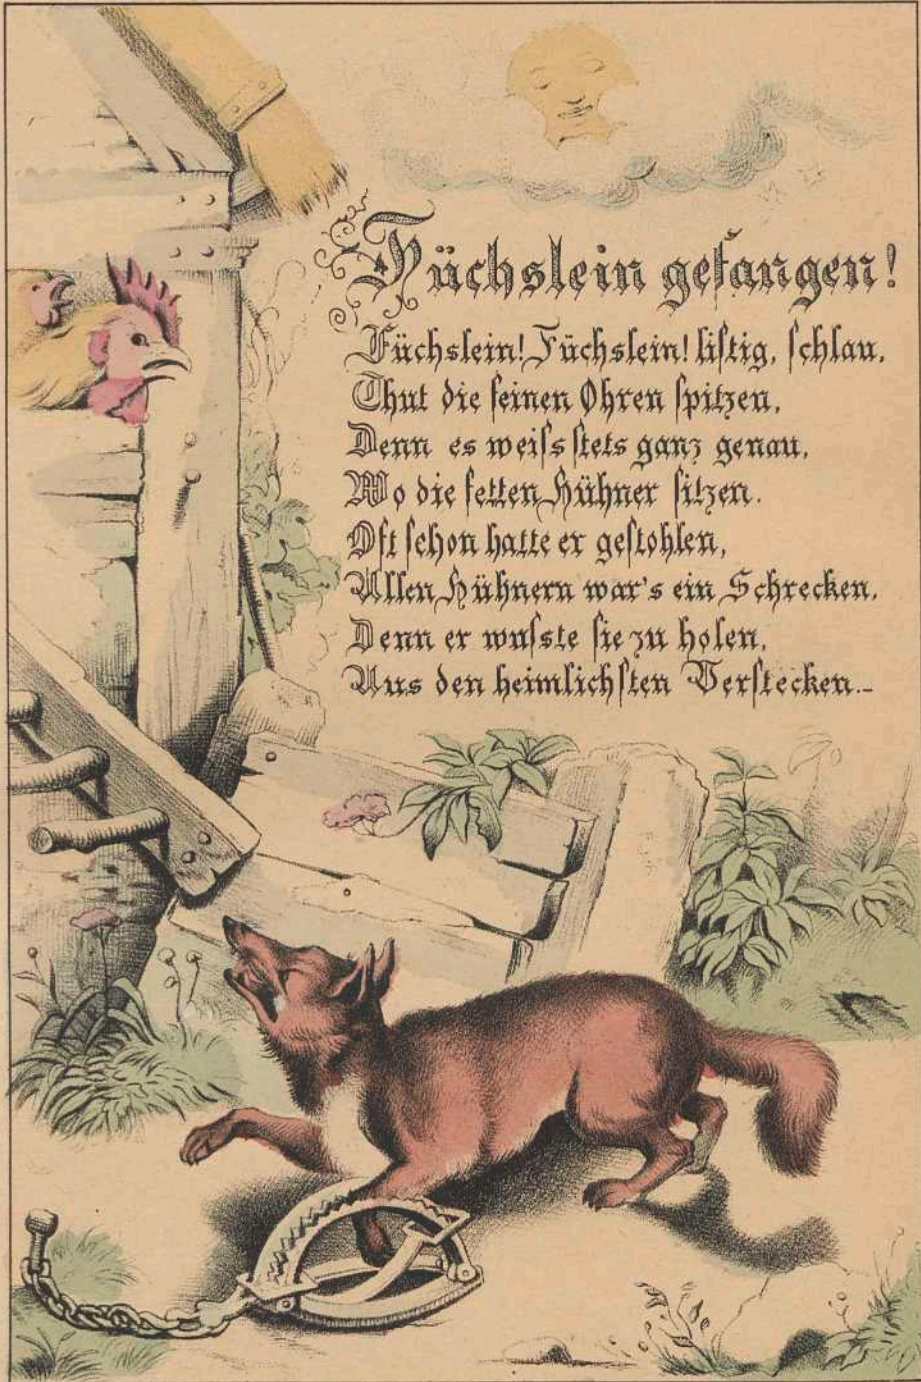 Füchslein gefangen!
Füchslein! Füchslein! liſtig, ſchlau,
Thut die feinen Ohren ſpitzen,
Denn es weiſs ſtets ganz genau,
Wo die fetten Hühner ſitzen.
Oft ſchon hatte er geſtohlen,
Allen Hühnern war's ein Schrecken,
Denn er wuſste ſie zu holen,
Aus den heimlichſten Verſtecken._